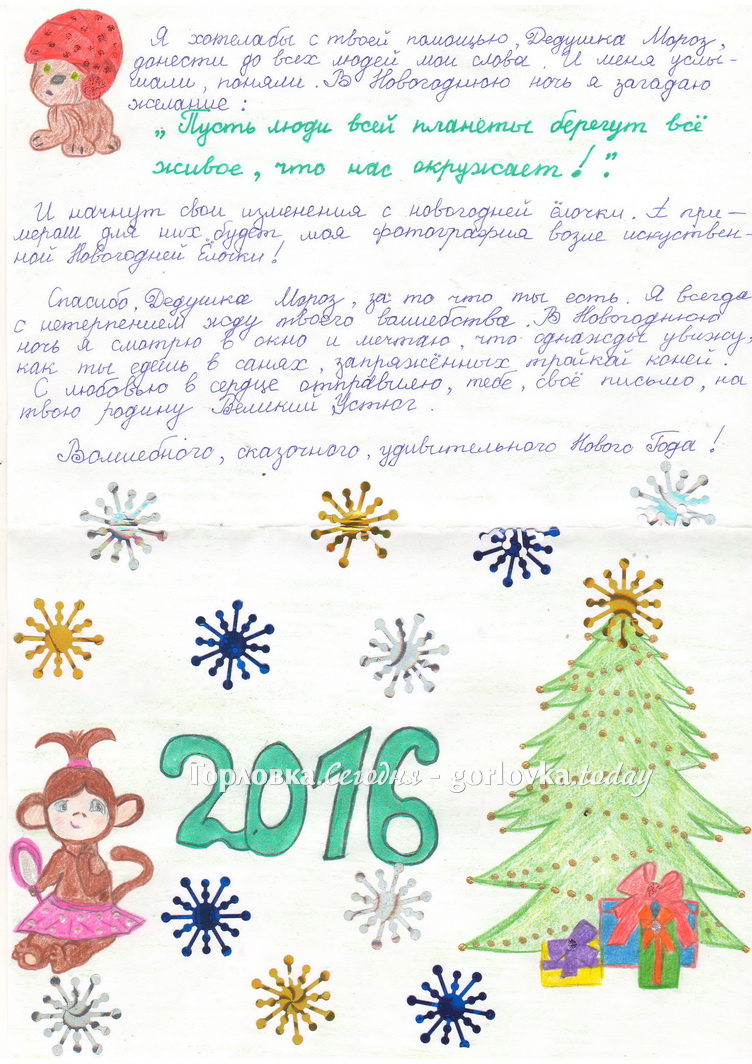 Я хотелабы с твоей помощью, Дедушка Мороз,
донести до всех людей мои слова. И меня услы-
шали, поняли. В Новогоднюю ночь я загадаю
желание:
„Пусть люди всей планеты берегут всё
живое, что нас окружает!".
И начнут свои изменения с новогодней ёлочки. А при-
мераш для них будет моя фотография возле искуствен-
ной Новогодней Ёлочки!
Спасибо, Дедушка Мороз, за то что ты есть. Я всегда
с нетерпением жду твоего волшебства. В Новогоднюю
ночь я смотрю в окно и мечтаю, что однажды увижу,
как ты едешь в санях, запряжённых тройкай коней.
С любовью в сердце отправляю, тебе, своё письмо, на
твою родину Великий Устюг.
Волшебного, сказочного, удивительного Нового Года!
2016
Горловка.Сегодня - gorlovka.today